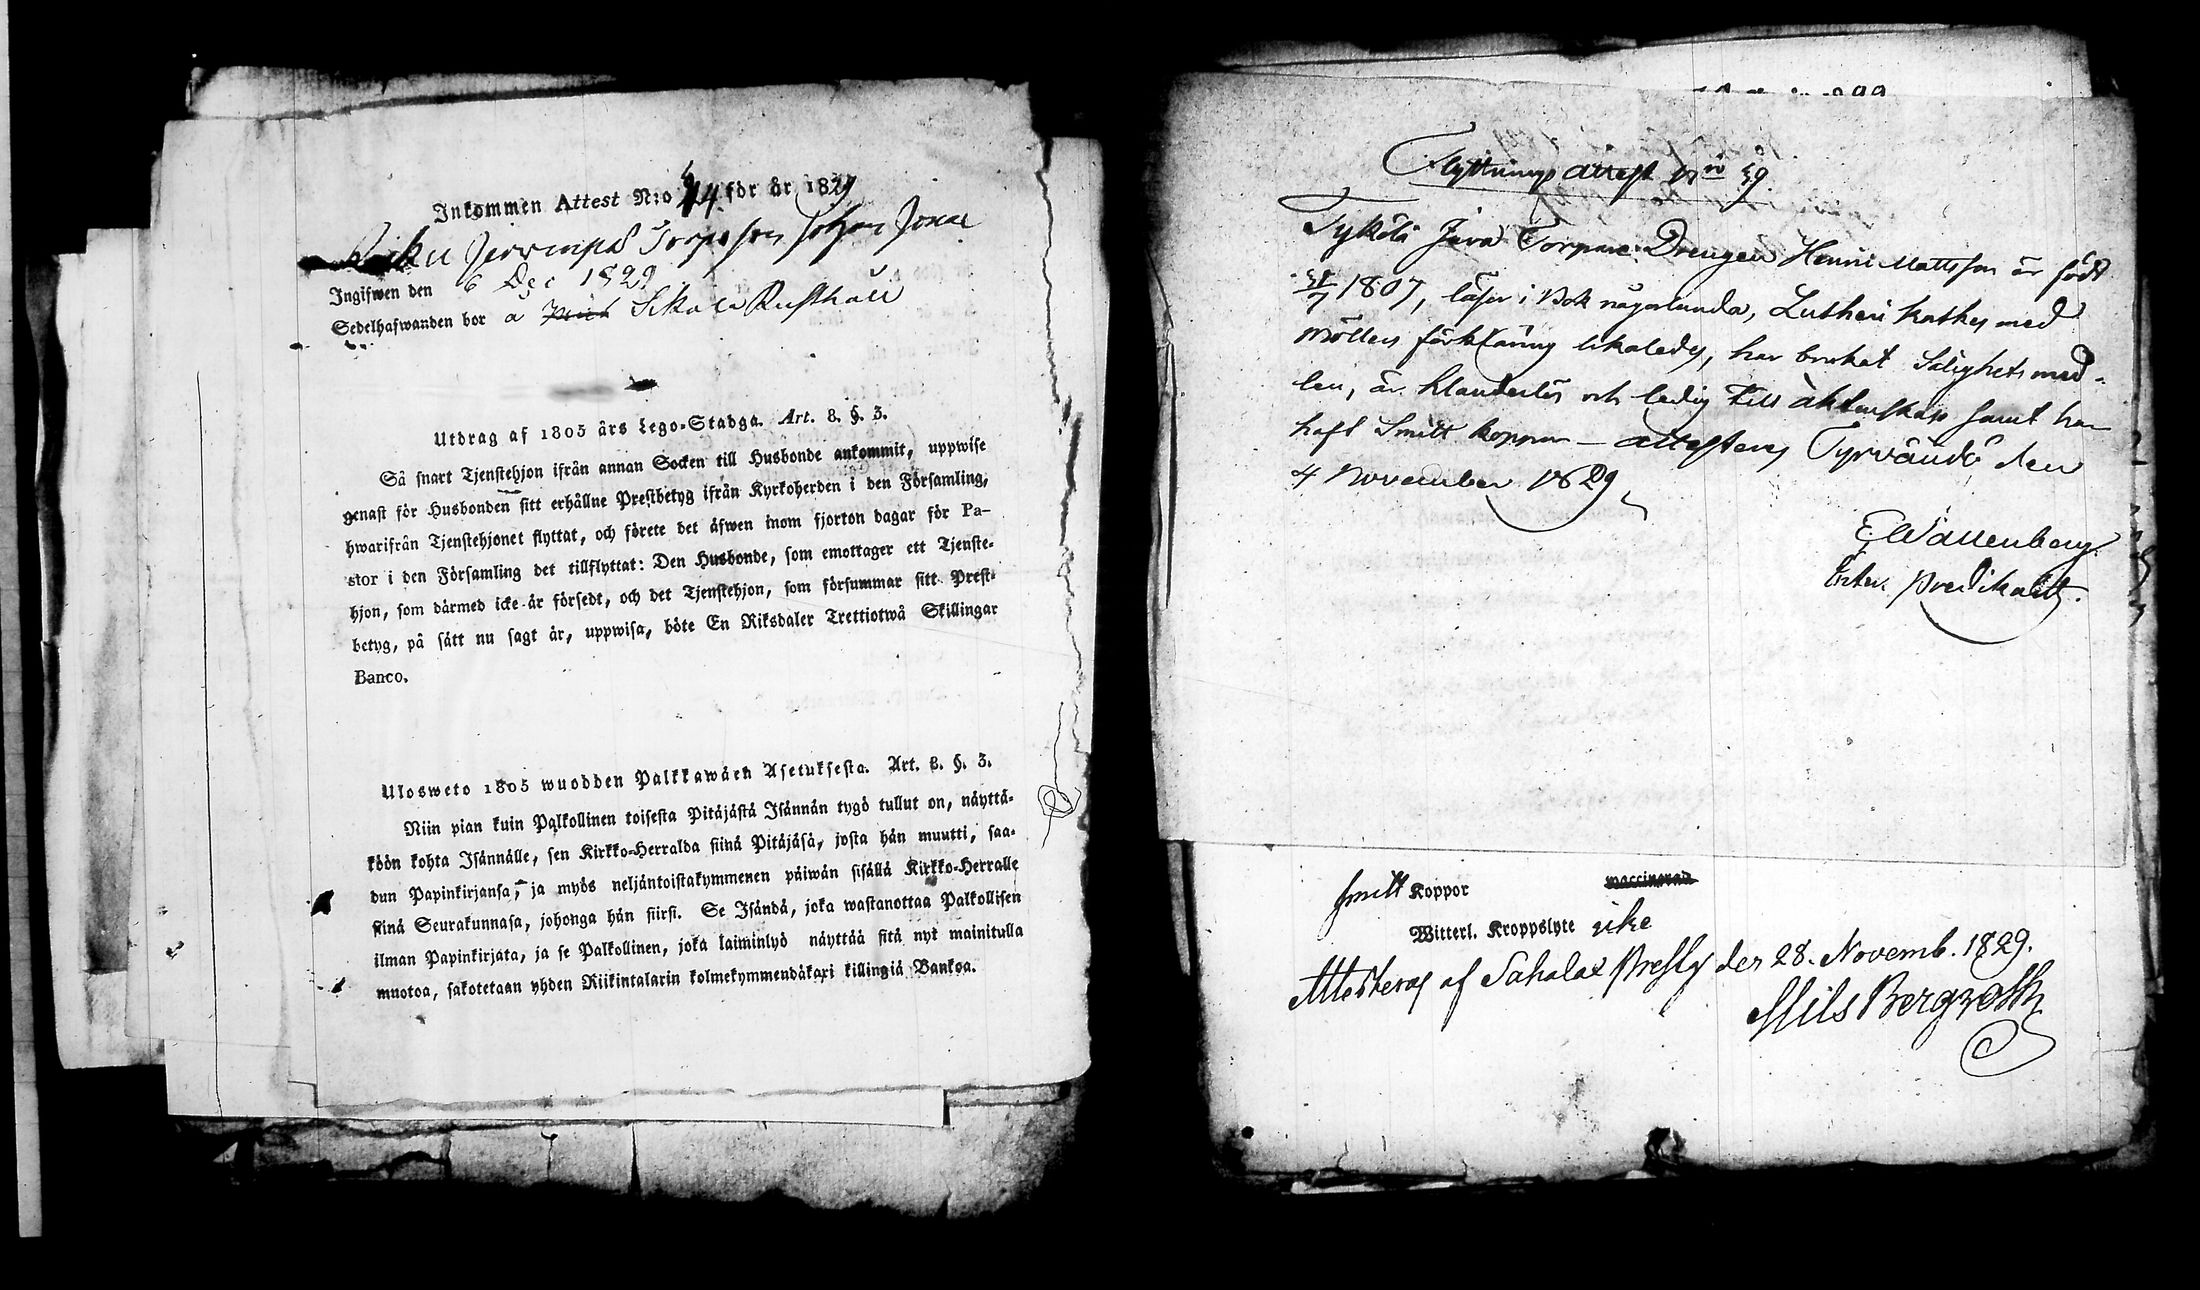 Inkommen Attest N:o 44 för år 1829
Torpare son Johan Jonae
Ingifwen den 6 Dec 1829
Sedelhafwanden bor å Sikala Rusthåll
Utdrag af 1805 års Lego-Stadga. Art. 8. §. 3.
Så snart Tjenstehjon ifrån annan Socken till Husbonde ankommit, uppwise
genast för Husbonden sitt erhållne Prestbetyg ifrån Kyrkoherden i den Församling,
hwarifrån Tjenstehjonet flyttat, och förete det äfwen inom fjorton dagar för Pa-
stor i den Församling det tillflyttat: Den Husbonde, som emottager ett Tjenste-
hjon, som därmed icke är försedt, och det Tjenstehjon, som försummar sitt Prest-
betyg, på sätt nu sagt är, uppwisa, böte En Riksdaler Trettiotwå Skillingar
Banco.
Ulosweto 1805 wuodden Palkkawäen Asetuksesta. Art. 8. §. 3.
Niin pian kuin Palkollinen toisesta Pitäjästä Isännän tygö tullut on, näyttä-
köön kohta Isännälle, sen Kirkko-Herralda siinä Pitäjäsä, josta hän muutti, saa-
dun Papinkirjansa, ja myös neljäntoistakymmenen päiwän sisällä Kirkko-Herralle
siinä Seurakunnasa, johonga hän siirsi. Se Isändä, joka wastanottaa Palkollisen
ilman Papinkirjata, ja se Palkollinen, joka laiminlyö näyttää sitä nyt mainitulla
muotoa, sakotetaan yhden Riikintalarin kolmekymmendäkaxi killingiä Bankoa.
Flyttnings attest N:ro 59
Tykölä Jära Torpare Drengen Henric Mattsson är född
1807, läser i Bok någorlunda, Lutheri Kathes med
Möllers förklaring likaledes, har brukat Salighetsmed-
len, är klanderlös och ledig till äktenskap samt har
haft Smitt koppor — attesteras Tyrvändö den
4 November 1829
E Wallenberg
Predikant.
smitt Koppor waccinerad
Witterl. Kroppslyte icke
Attesteras af Sahalax Prestg den 28. Novemb. 1829.
Nils Bergroth